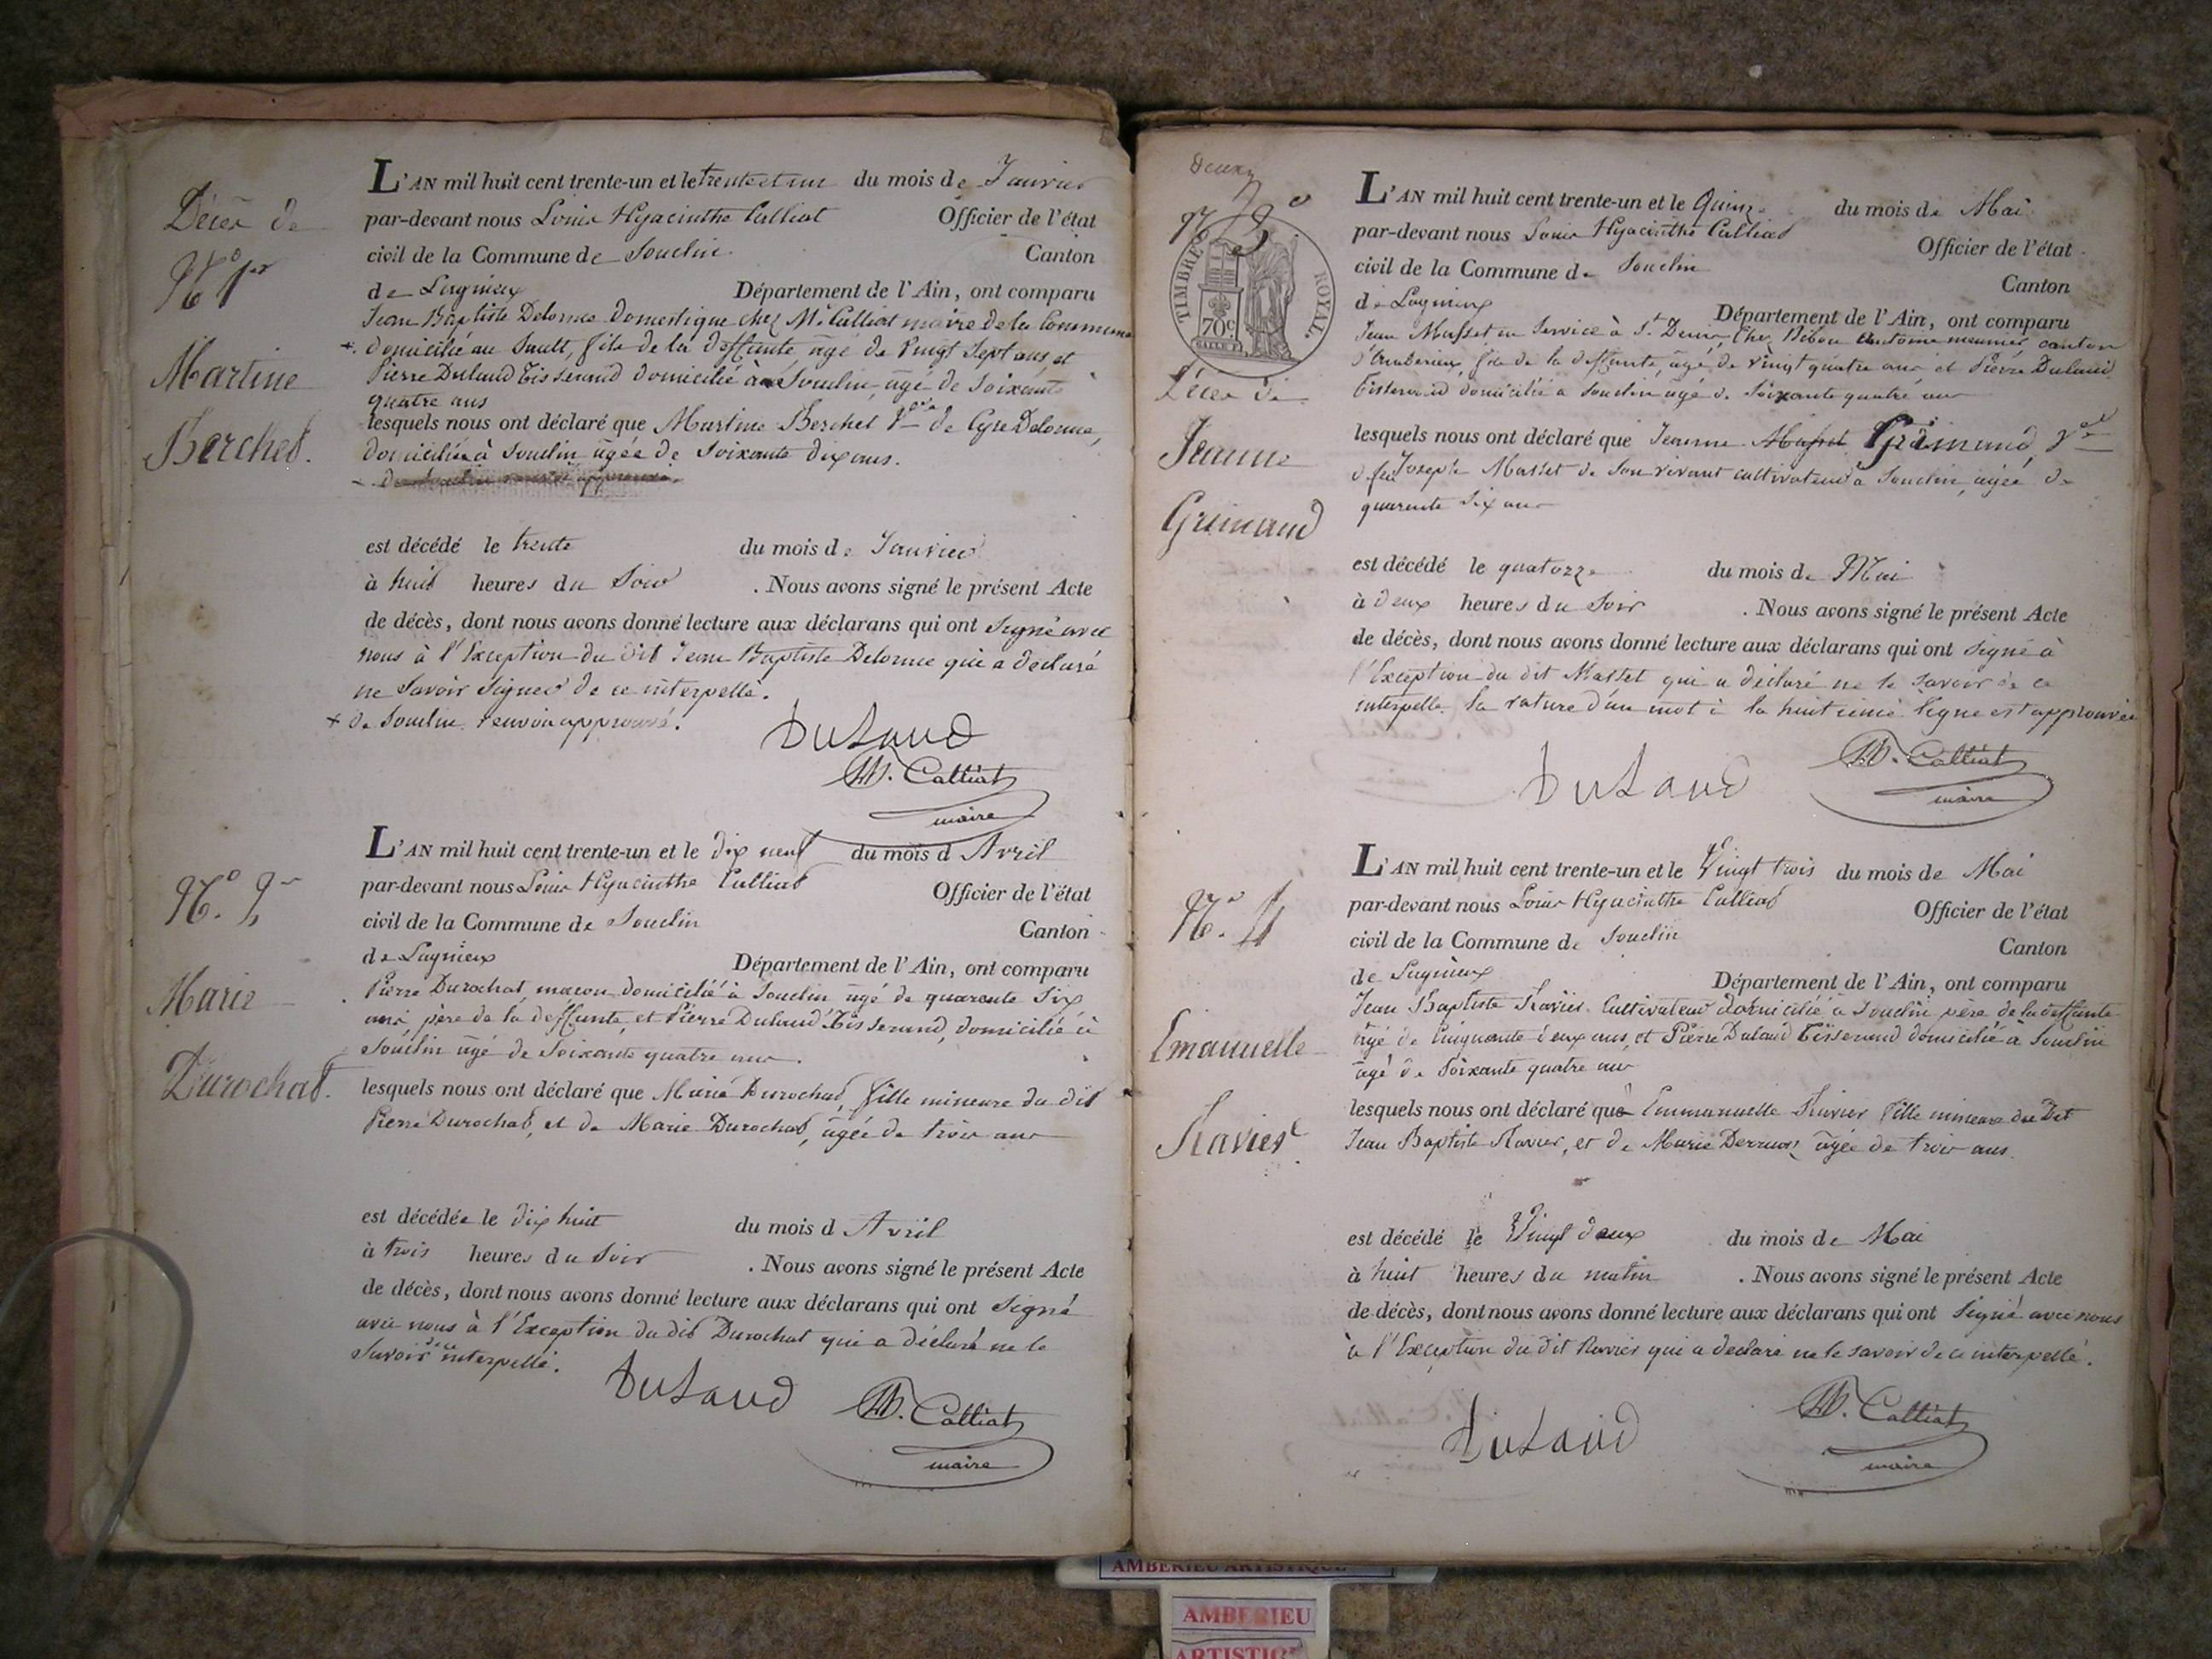 Décès de
N° 1er
Martine
Berchet.
L'AN mil huit cent trente-un et le trente et un du mois de Janvier
par-devant nous Louis Hyacinthe Calliat Officier de l'état
civil de la Commune de Souclin Canton
de Lagnieu Département de l'Ain, ont comparu
Jean Baptiste Delorme domestique chez Mr Calliat maire de la Commune
+. domicilié au Sault, fils de la deffunte âgé de vingt sept ans, et
Pierre Dulaud Tisserand domicilié à Souclin, âgé de Soixante
quatre ans
lesquels nous ont déclaré que Martine Berchet Vve de Cyre Delorme,
domiciliée à Souclin âgée de Soixante dix ans.
est décédé le trente du mois de Janvier
à huit heures du Soir . Nous avons signé le présent Acte
de décès, dont nous avons donné lecture aux déclarans qui ont Signé avec
nous à l'Exception du dit Jean Baptiste Delorme qui a déclaré
ne Savoir Signer de ce interpellé.
+ de Souclin renvoi approuvé.
Dulaud
Calliat
maire
N°. 2
Marie
Durochat.
L'AN mil huit cent trente-un et le dix neuf du mois d Avril
par-devant nous Louis Hyacinthe Calliat Officier de l'état
civil de la Commune de Souclin Canton
de Lagnieu Département de l'Ain, ont comparu
Pierre Durochat, maçon domicilié à Souclin âgé de quarante Six
ans, père de la deffunte, et Pierre Dulaud Tisserand, domicilié à
Souclin âgé de Soixante quatre ans.
lesquels nous ont déclaré que Marie Durochat, fille mineure du dit
Pierre Durochat, et de Marie Durochat, âgée de trois ans
est décédée le dix huit du mois d Avril
à trois heures du Soir . Nous avons signé le présent Acte
de décès, dont nous avons donné lecture aux déclarans qui ont Signé
avec nous à l'Exception du dit Durochat qui a déclaré ne le
Savoir de ce interpellé.
Dulaud
Calliat
maire
deux
N° 3
TIMBRE ROYAL.
70c
Décès de
Jeanne
Grimaud
L'AN mil huit cent trente-un et le Quinze du mois de Mai
par-devant nous Louis Hyacinthe Calliat Officier de l'état
civil de la Commune de Souclin Canton
de Lagnieu Département de l'Ain, ont comparu
Jean Masset, en Service à St Denis, Chez Antoine meunier, canton
d'Ambérieux, fils de la deffunte, âgé de vingt quatre ans et Pierre Dulaud
Tisserand domicilié à Souclin âgé de Soixante quatre ans
lesquels nous ont déclaré que Jeanne Grimaud, Vve
d feu Joseph Masset de Son vivant cultivateur à Souclin, âgée de
quarente Six ans
est décédé le quatorze du mois de Mai
à deux heures du Soir . Nous avons signé le présent Acte
de décès, dont nous avons donné lecture aux déclarans qui ont Signé à
l'Exception du dit Masset qui a déclaré ne le Savoir de ce
interpellé. la rature d'un mot à la huitième ligne est approuvée
Dulaud
Calliat
maire
N°. 4
Emanuelle
Ravier
L'AN mil huit cent trente-un et le Vingt trois du mois de Mai
par-devant nous Louis Hyacinthe Calliat Officier de l'état
civil de la Commune de Souclin Canton
de Lagnieux Département de l'Ain, ont comparu
Jean Baptiste Ravier Cultivateur domicilié à Souclin père de la deffunte
âgé de Cinquante deux ans, et Pierre Dulaud Tisserand domicilié à Souclin
âgé de Soixante quatre ans
lesquels nous ont déclaré que Emmanuelle Ravier fille mineure du dit
Jean Baptiste Ravier, et de Marie âgée de trois ans.
est décédé le Vingt deux du mois de Mai
à huit heures du matin . Nous avons signé le présent Acte
de décès, dont nous avons donné lecture aux déclarans qui ont Signé avec nous
à l'Exception du dit Ravier qui a déclaré ne le savoir de ce interpellé.
Dulaud
Calliat
maire
AMBERIEU ARTISTIQUE
AMBERIEU